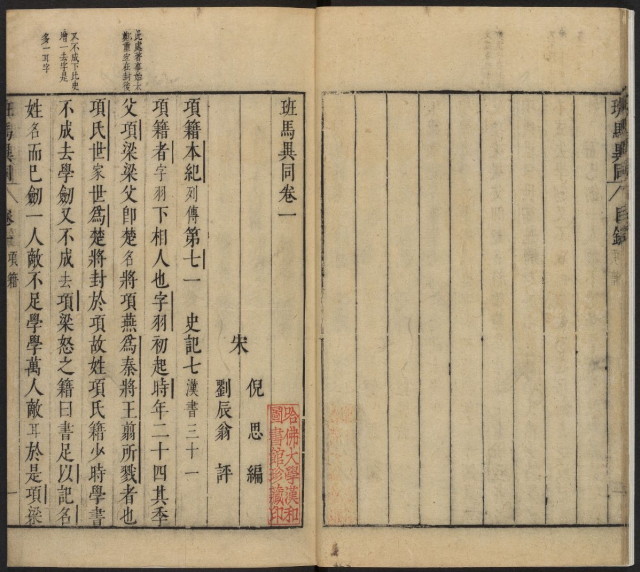 班馬異同 目錄
班馬異同卷一
宋 倪思編
劉辰翁評
項籍本紀列傳第七一 史記七漢書三十一
項籍者字羽下相人也字羽初起時年二十四其季
父項梁梁父即楚名將項燕為秦將王翦所戮者也
項氏世家世為楚將封於項故姓項氏籍少時學書
不成去學劒又不成去項梁怒之籍曰書足以記名
姓名而已劒一人敵不足學學萬人敵耳於是項梁
班馬異同 卷一 項籍 一
又不成下比史
增一去字是
多一耳字
哈佛大學漢和
圖書館珍藏印